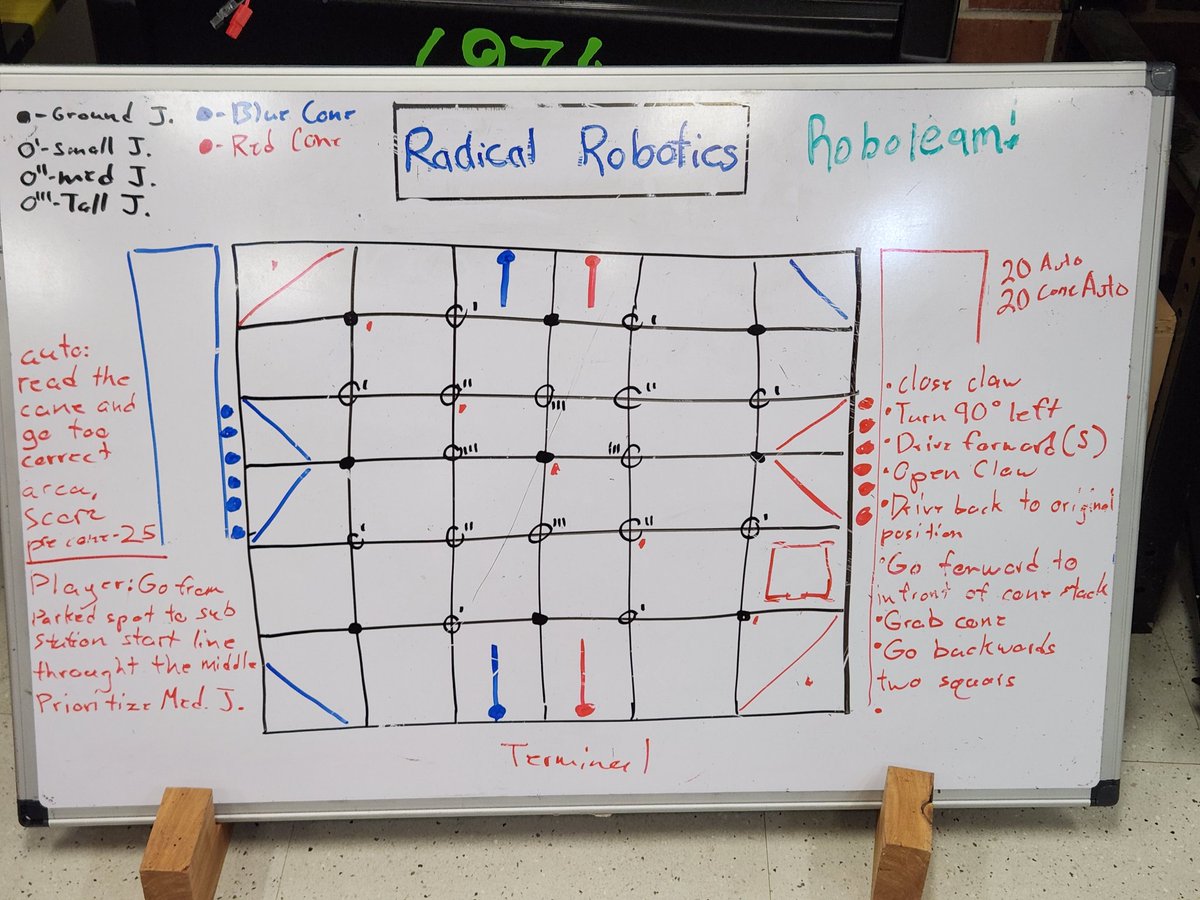 ●-Ground J.
O'-small J.
O"-med J.
O'''-Tall J.
●-Blue Cone
●-Red Cone
Radical Robotics
auto:
read the
cone and
go too
correct
area,
Score
pre cone-25
Player: Go from
Parked spot to sub
station start line
throught the middle
Prioritize Med. J.
20 Auto
20 Cone Auto
•close claw
•Turn 90° left
•Drive forward(s)
•Open Claw
•Drive back to original
position
•Go forward to
infront of cone stack
•Grab cone
•Go backwards
two squars
•
Terminal